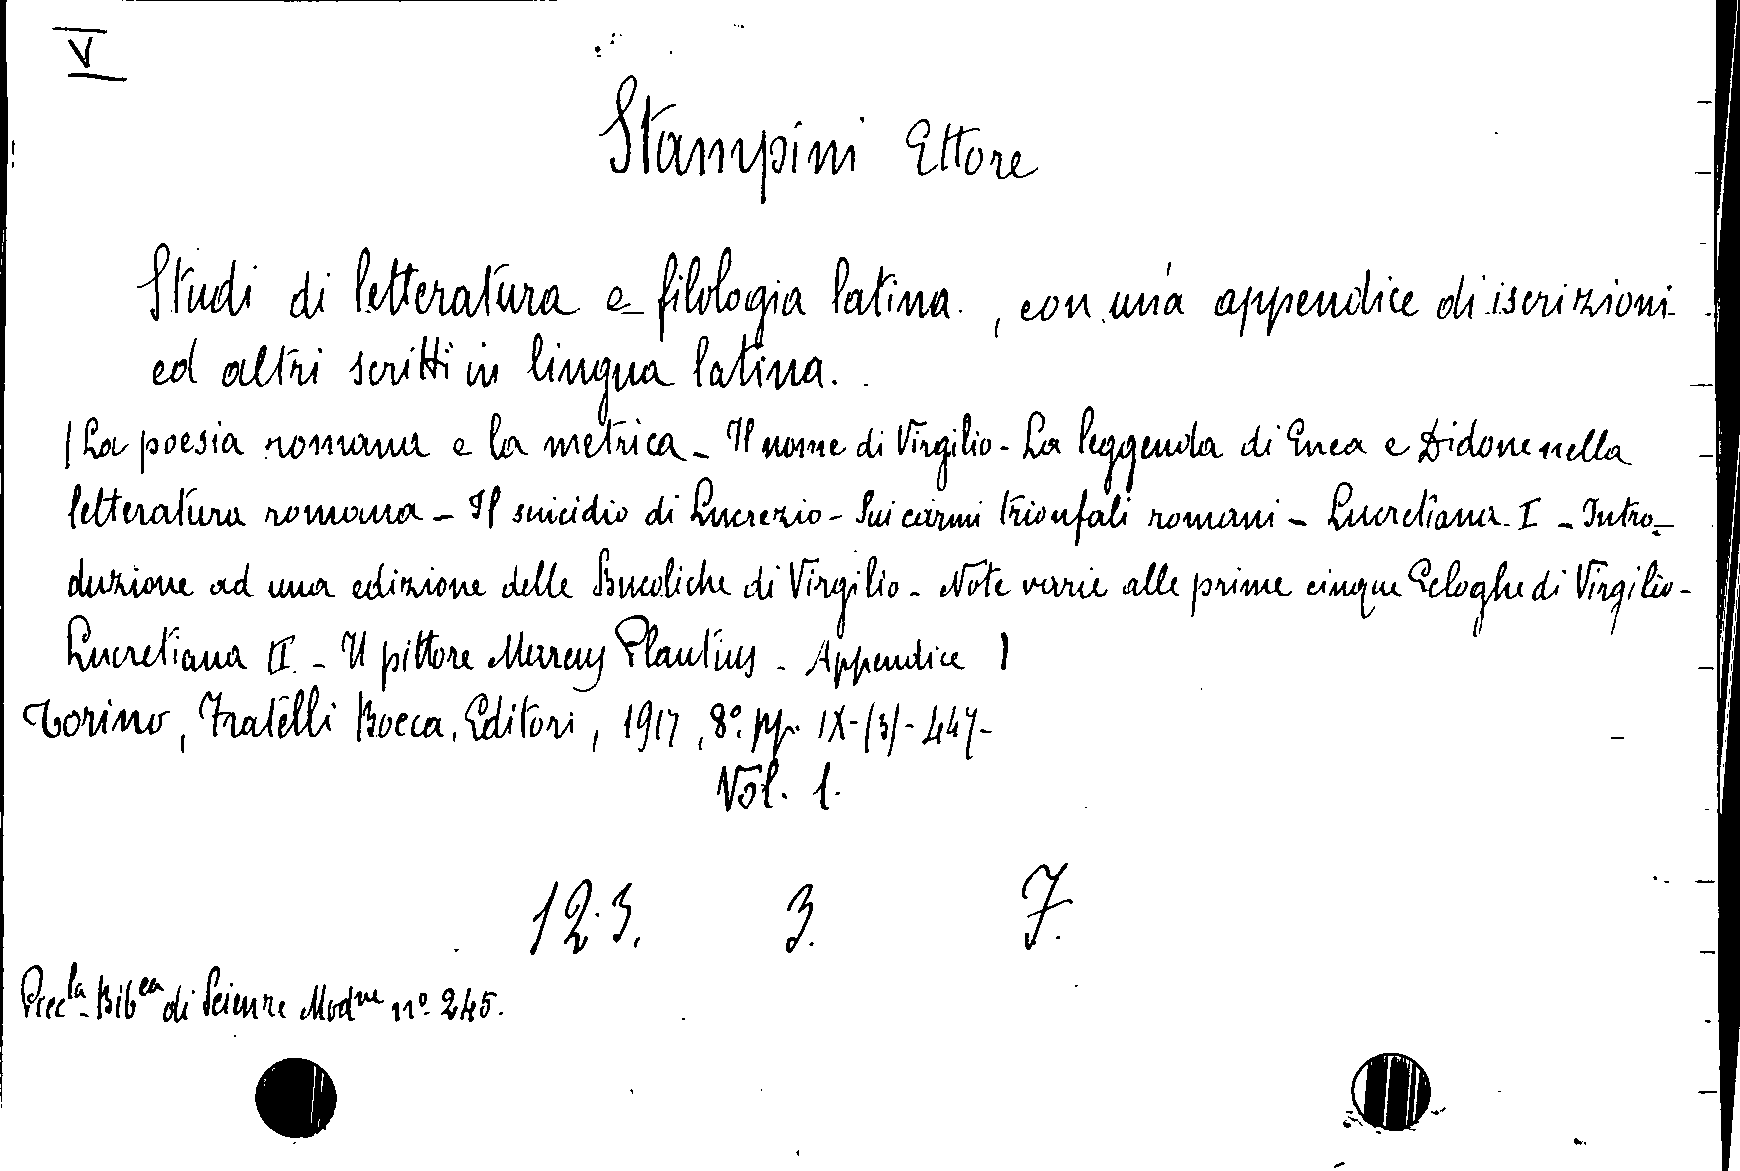 V
Stampini Ettore
Studi di letteratura e filologia latina. , con una appendice di iscrizioni
ed altri scritti in lingua latina.
(La poesia romana e la metrica - Il nome di Virgilio - La leggenda di Enea e Didone nella
letteratura romana - Il suicidio di Lucrezio - Sui carmi trionfali romani - Lucretiana I - Intro-
duzione ad una edizione delle Bucoliche di Virgilio - Note varie alle prime cinque Ecloghe di Virgilio -
Lucretiana II - Il pittore Marcus Plautius - Appendice )
Torino, Fratelli Bocca, Editori, 1917, 8º. pp. IX-(3)-447-
Vol. 1.
123. 3. 7.
Picc.la Bib.ca di Scienze Mod.ne nº. 245.